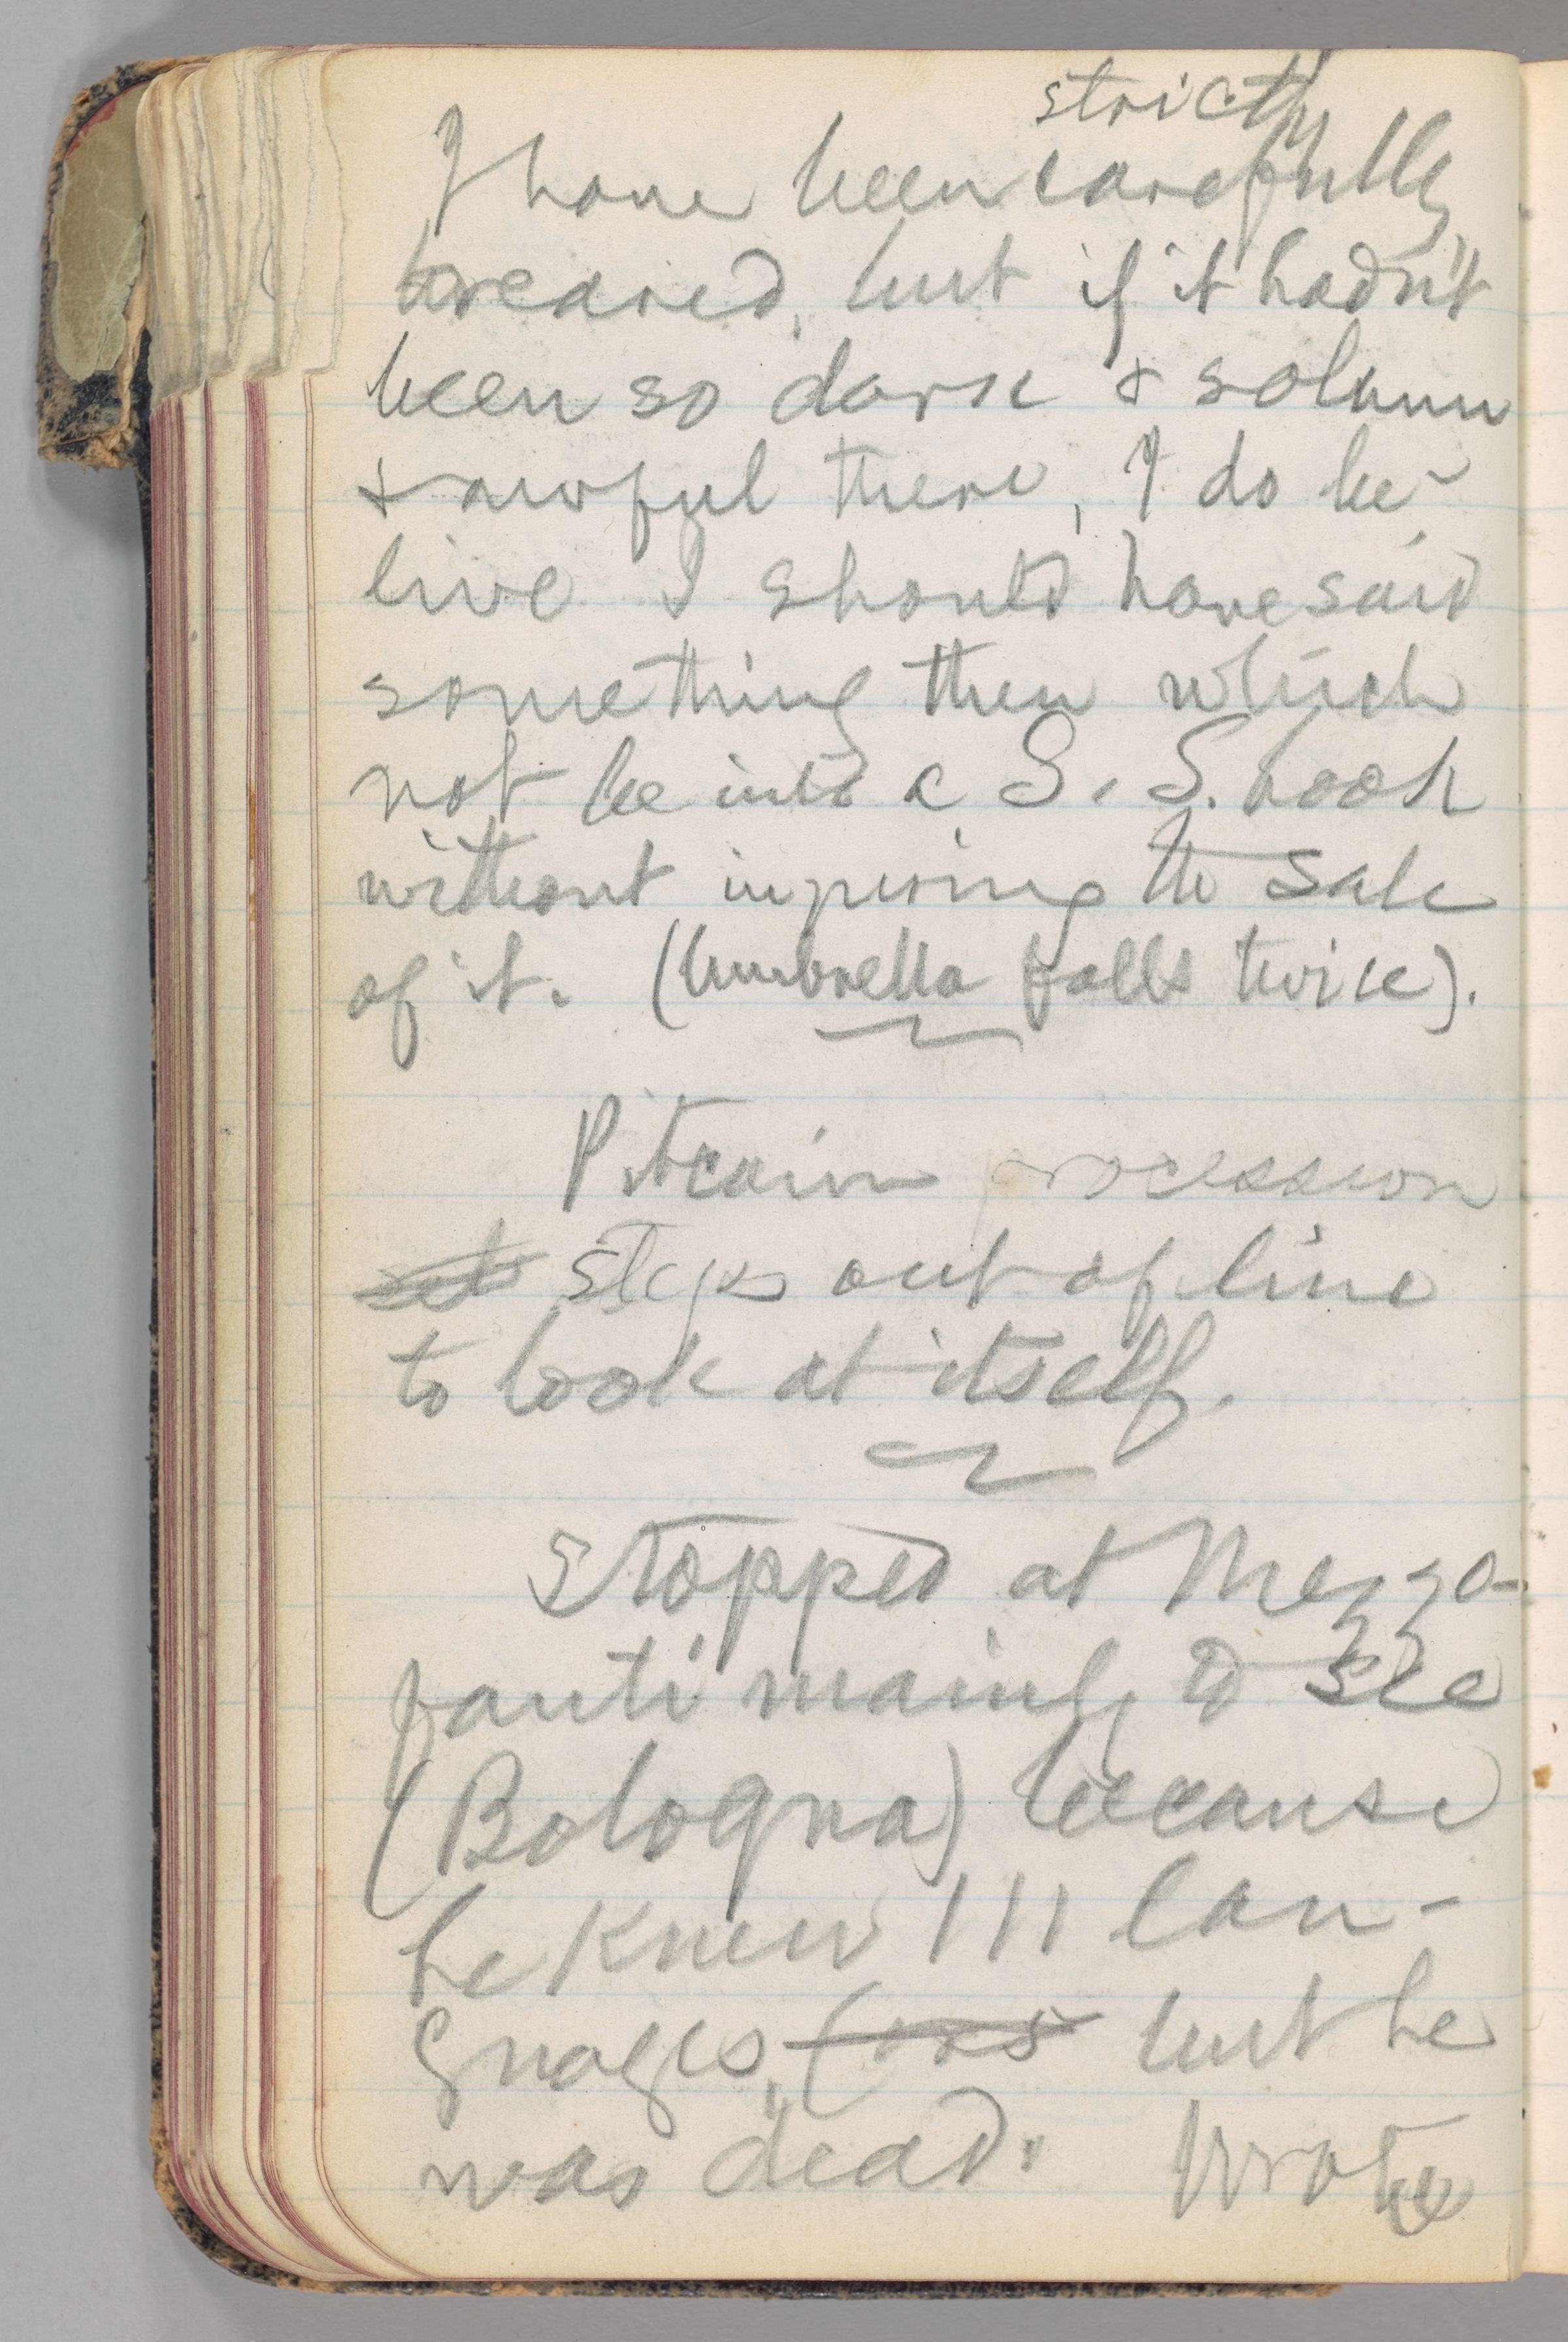 strictly
I have been carefully
reared, but if it hadn't
been so dark & solemn
& awful there, I do be-
live I should have said
something then which
not be into a S. S. book
without injuring the sale
of it. (Umbrella falls twice).
Pitcairn procession
steps out of line
to look at itself.
Stopped at Mezzo-
fanti mainly to see
(Bologna) because
he knew 111 lan-
guages, (was but he
was dead. Wrote